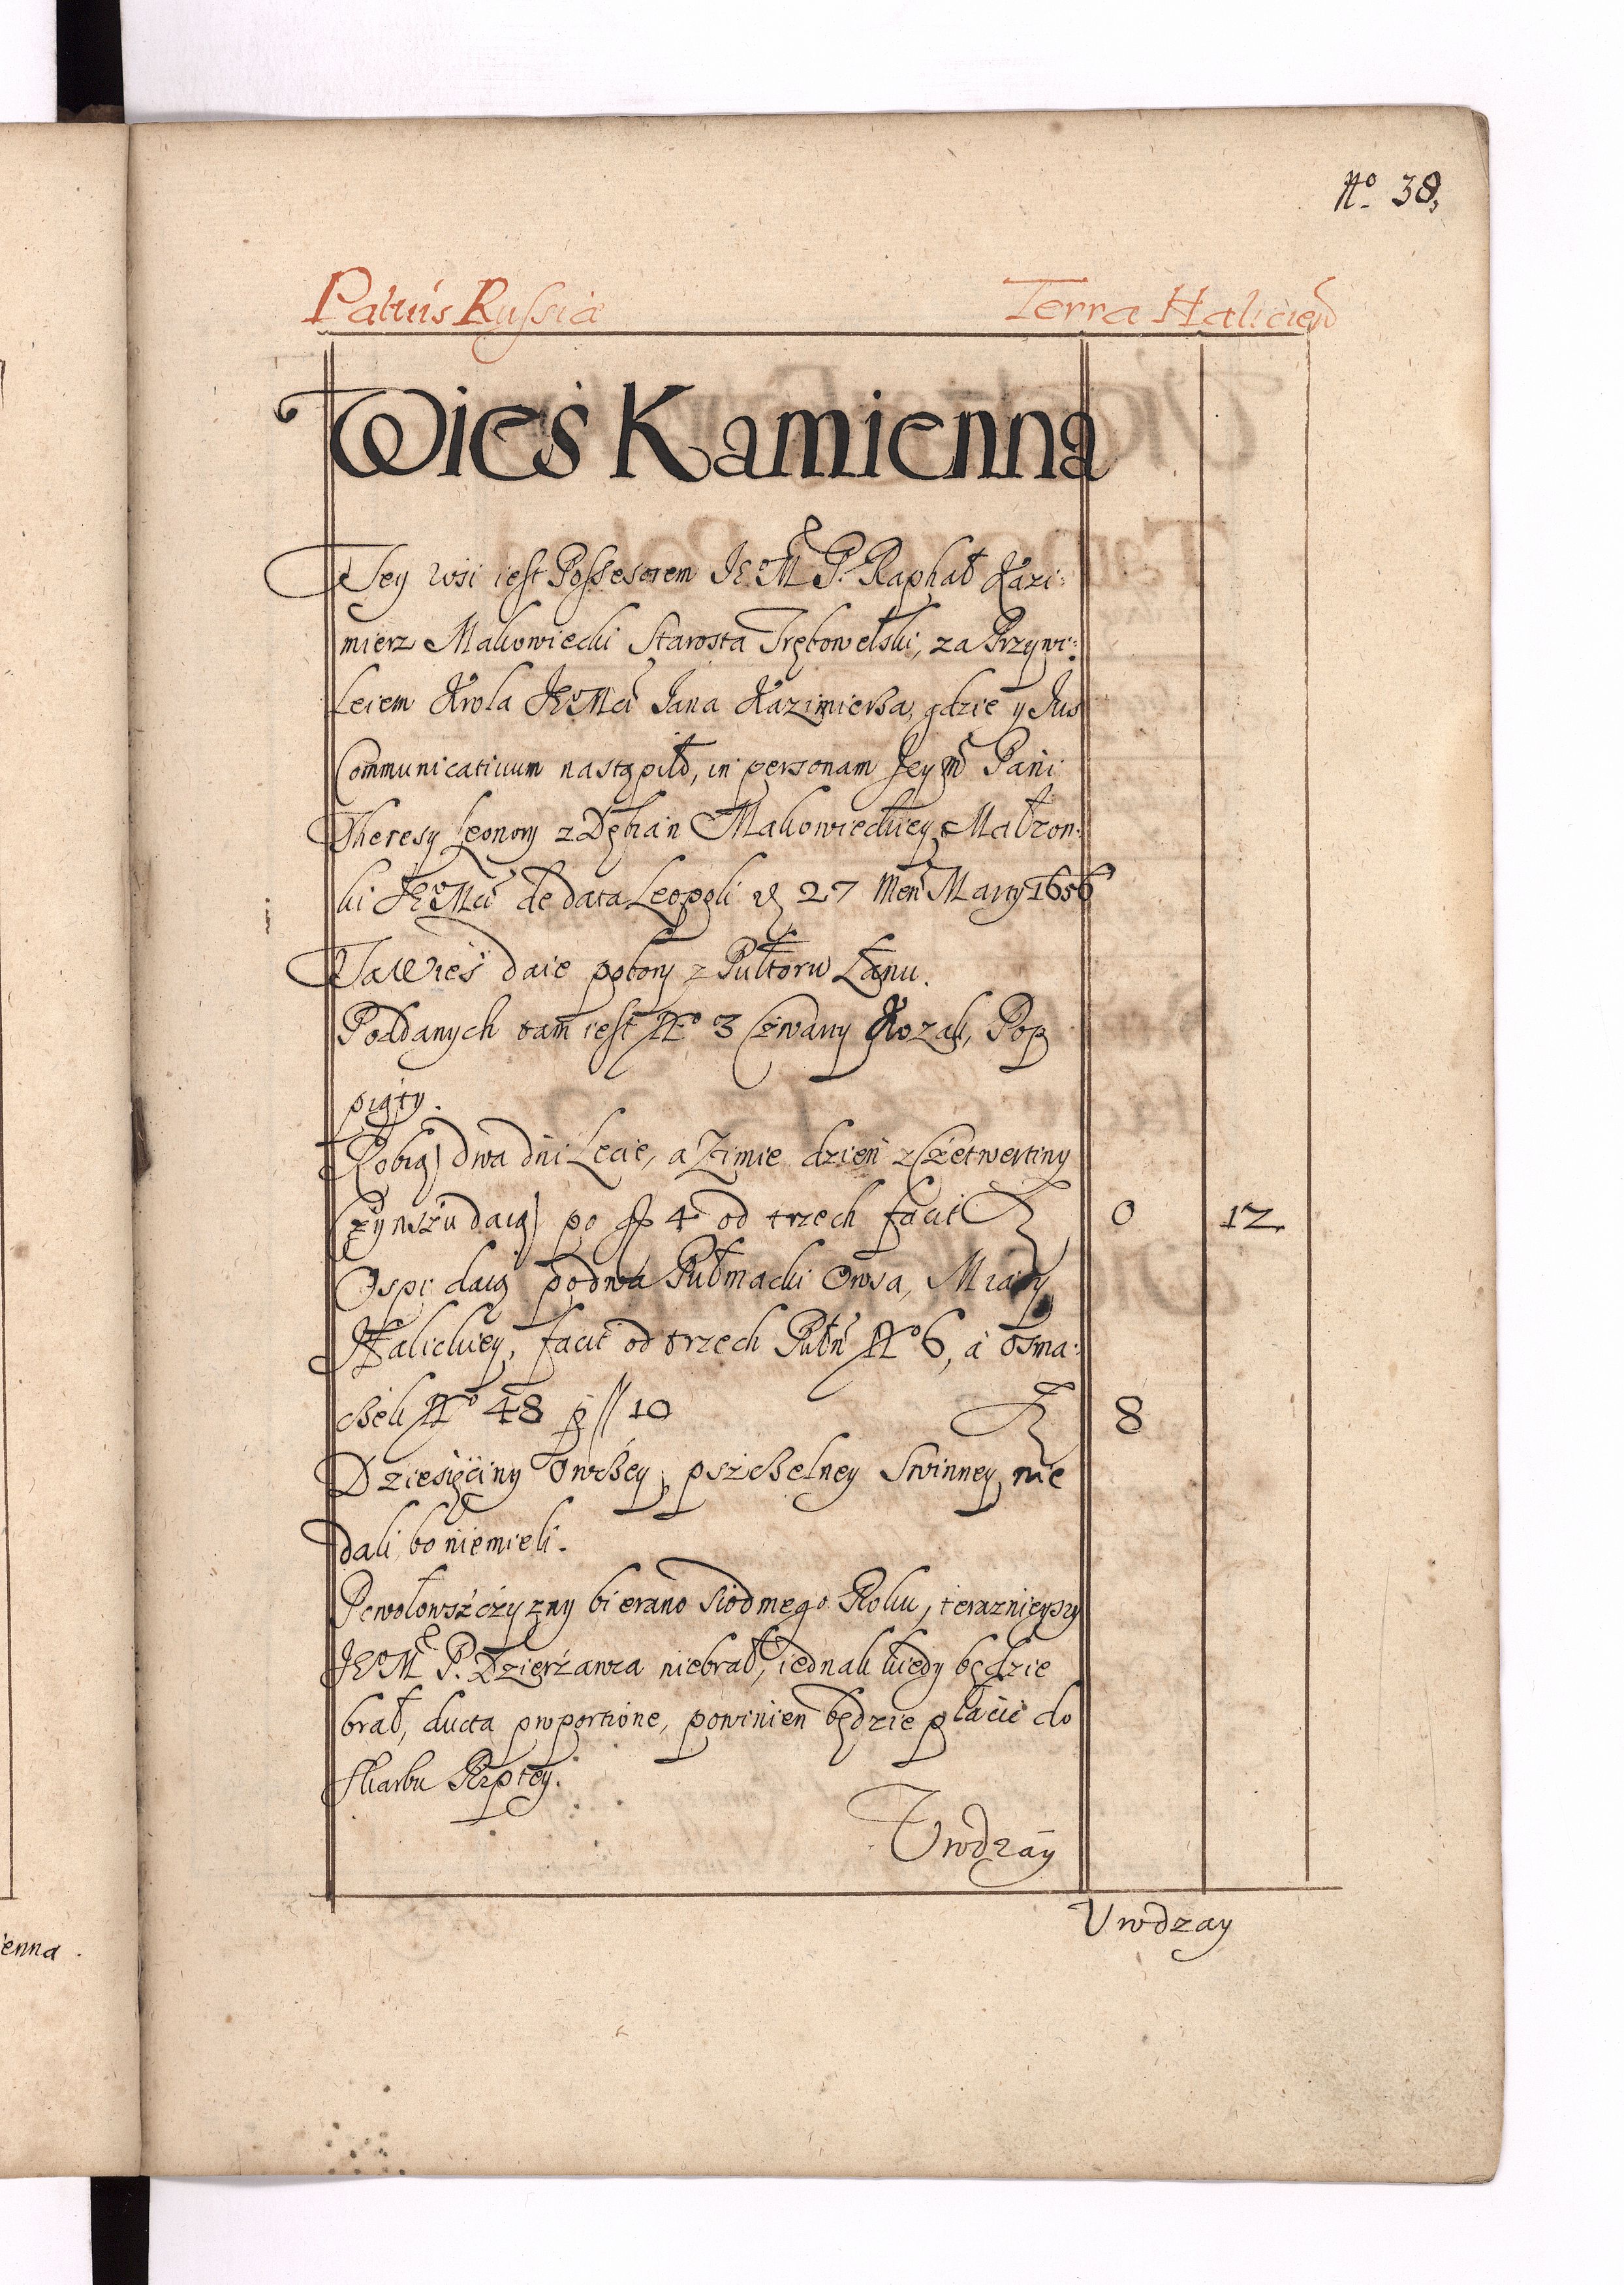 No. 38,
Pałtus Russiæ Terra Halicień
Wieś Kamienna
Tey wsi iest Possesorem JEo Mć P. Raphał Kazi:
mierz Makowiecki Starosta Trębowelski, za Przywi:
leiem Krola JEo Mci Jana Kazimierza, gdzie y Jus
Communicativum nastąpiło, in personam Jey Mći Pani
Theresy Leonory z Dębian Makowieckiey Małżon:
ki JEo Mci de data Leopoli d 27 Men Martij 1656
Ta Wieś daie pobory z Pułtoru Łanu.
Poddanych tam iest No 3 Czwarty Kozak, Pop
piąty.
Robią dwa dni Lecie, a Zimie dzień z Czetwertiny
Czynszu daią po gr 4 od trzech facit f 0 12
Ospi daią po dwa Pułmacki Owsa, Miary
Halickiey, facit od trzech Pułm No 6, á osma:
czek No 48 p gr 10 f 8
Dziesięciny Owczey, pszczelney Swinney nie
dali bo niemieli.
Powołowszczyzny bierano Siodmego Roku, terazniejszy
JEo Mć P. Dzierżawca niebrał, iednak kiedy będzie
brał, ducta proportione, powinien będzie płacić do
Skarbu Rzptey.
Urodzay
Urodzay
ienna.